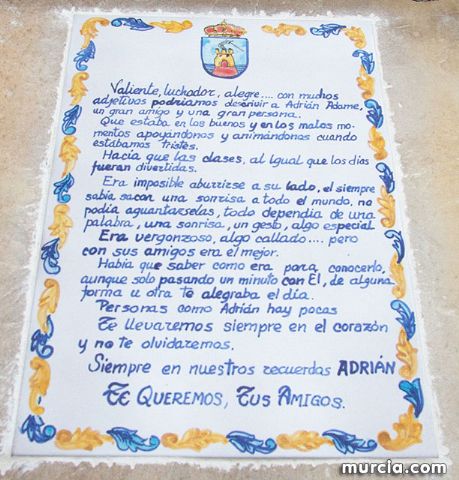 Valiente, luchador, alegre.... con muchos
adjetivos podríamos describir a Adrián Adame,
un gran amigo y una gran persona.
Que estaba en los buenos y en los malos mo-
mentos apoyándonos y animándonos cuando
estábamos tristes.
Hacía que las clases, al igual que los días
fueran divertidas.
Era imposible aburrirse a su lado, el siempre
sabía sacar una sonrisa a todo el mundo, no
podía aguantárselas, todo dependía de una
palabra, una sonrisa, un gesto, algo especial
Era vergonzoso, algo callado.... pero
con sus amigos era el mejor.
Había que saber como era para conocerlo,
aunque solo pasando un minuto con Él, de alguna
forma u otra te alegraba el día.
Personas como Adrián hay pocas
Te llevaremos siempre en el corazón
y no te olvidaremos.
Siempre en nuestros recuerdos ADRIÁN
TE QUEREMOS, TUS AMIGOS.
murcia.com